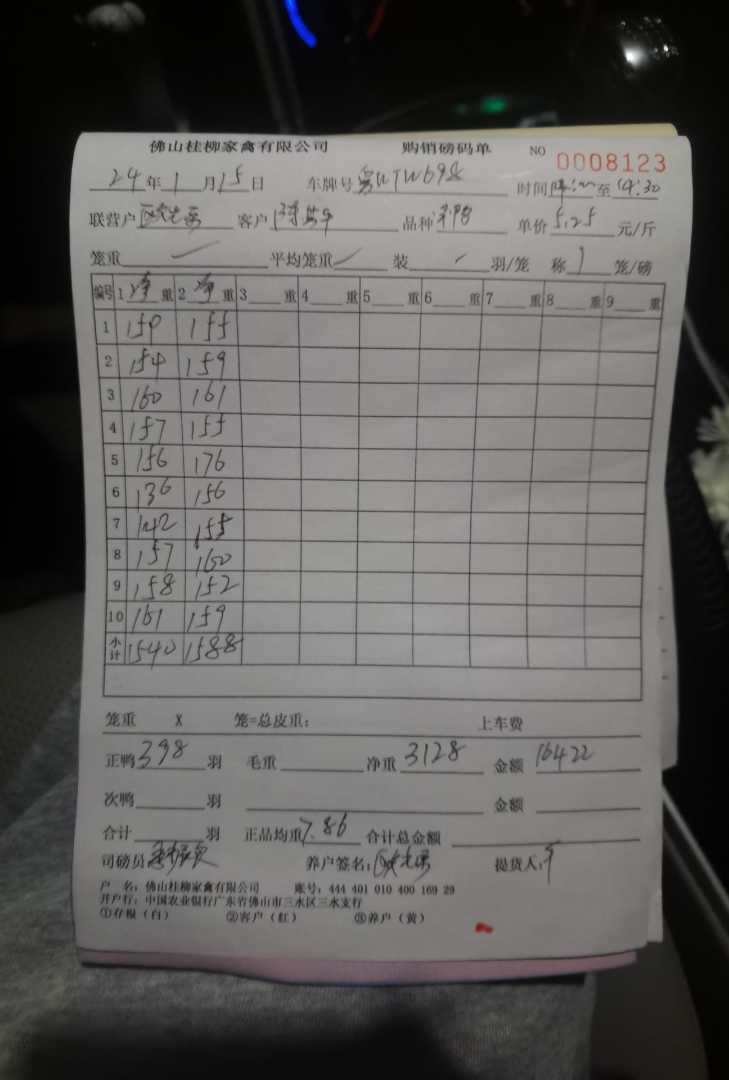 佛山桂柳家禽有限公司 购销磅码单 NO 0008123
24年1月15日 车牌号 时间 至 14:30
联营户 客户 品种 单价 5.25 元/斤
笼重 平均笼重 装 羽/笼 称 1 笼/磅
编号 1 净 重 2 净 重 3 重 4 重 5 重 6 重 7 重 8 重 9 重
1 159 155
2 154 159
3 160 161
4 157 155
5 156 176
6 136 156
7 142 155
8 157 160
9 158 152
10 161 159
小计 1540 1588
笼重 X 笼=总皮重: 上车费
正鸭 398 羽 毛重 净重 3128 金额 16422
次鸭 羽 金额
合计 羽 正品均重 7.86 合计总金额
司磅员 养户签名: 提货人:
户 名: 佛山桂柳家禽有限公司 账号: 444 401 010 400 169 29
开户行: 中国农业银行广东省佛山市三水区三水支行
①存根(白) ②客户(红) ③养户(黄)